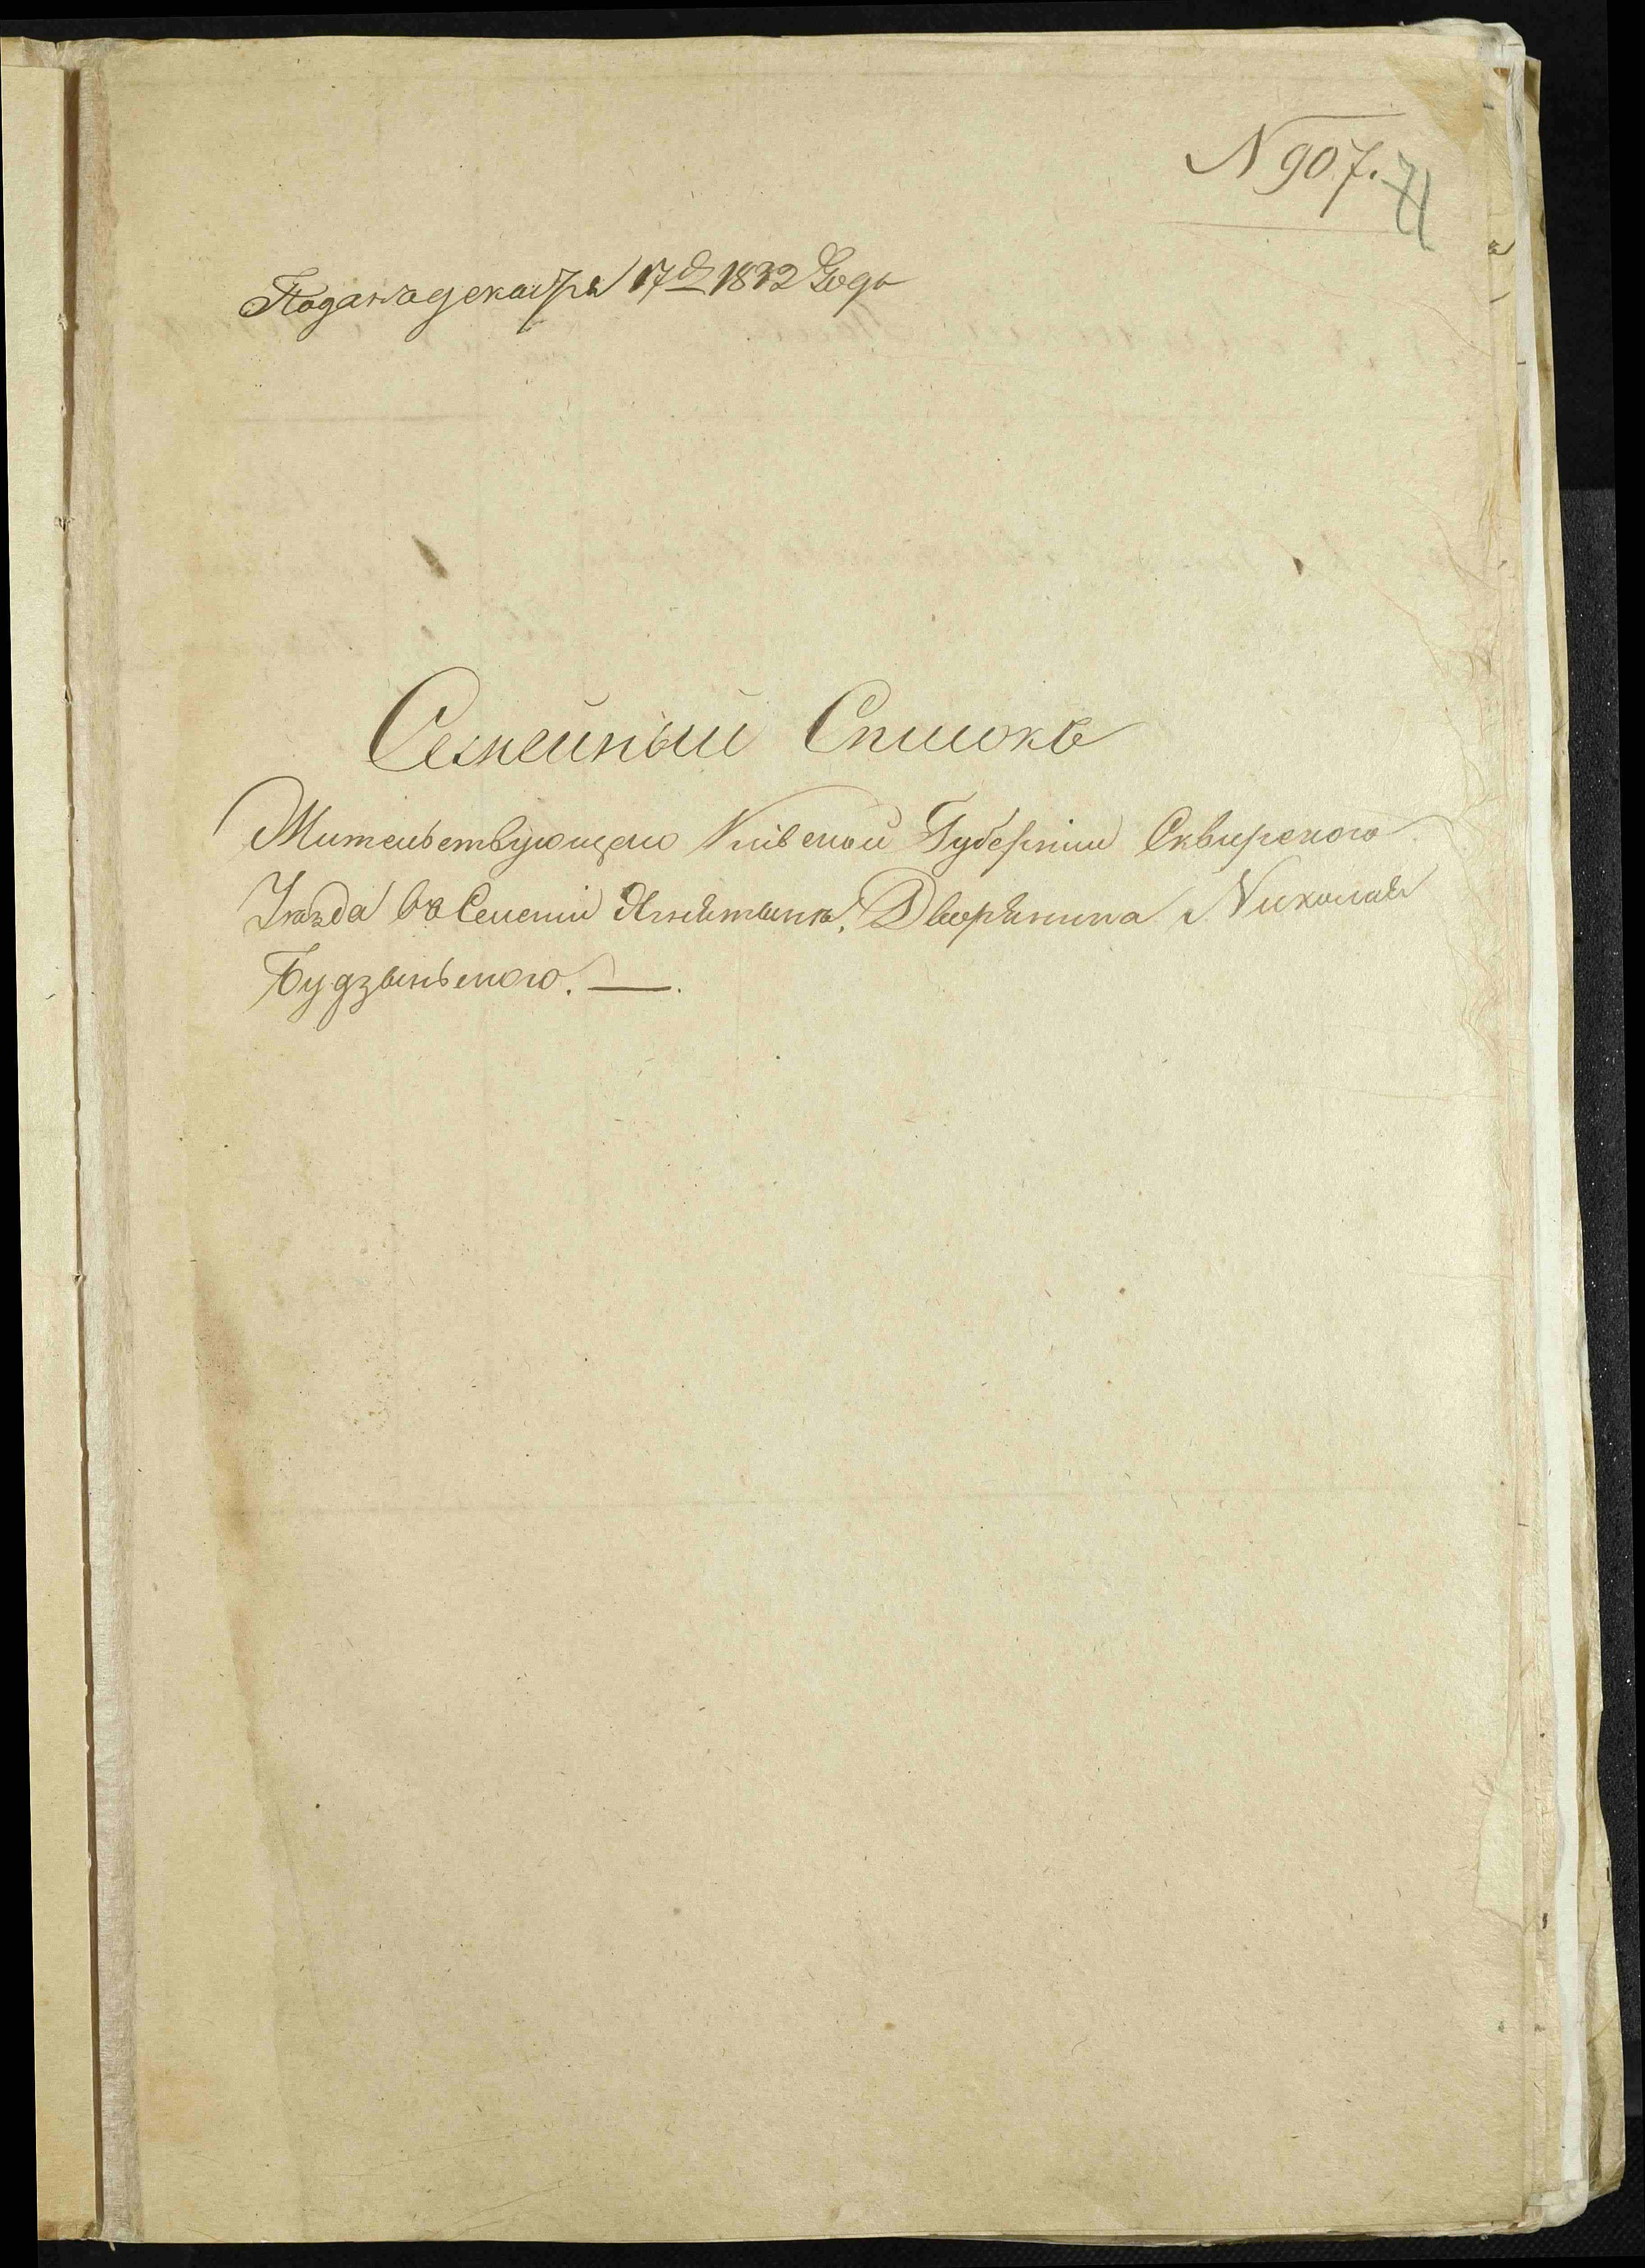 N 907.
71
Подана декабря 17 д 1832 Года
Семейный Списокъ
Жительствующаго Кіевской Губерніи Сквирского
Уѣзда въ Селеніи Ягнятынѣ, Дворянина Николая
Будзыньского. —.